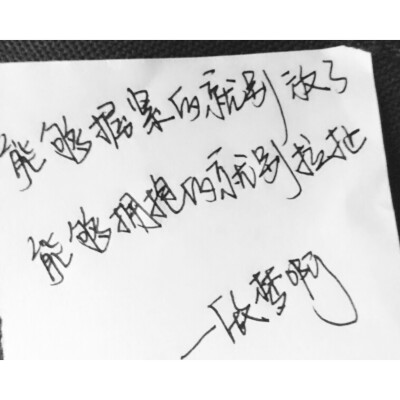 能够握紧的就别放了
能够拥抱的就别拉扯
一做梦啊